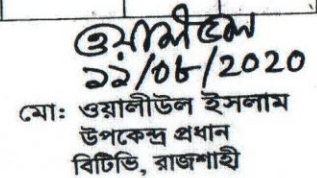 ওয়ালীউল
১১/০৮/2020
মো: ওয়ালীউল ইসলাম
উপকেন্দ্র প্রধান
বিটিভি, রাজশাহী